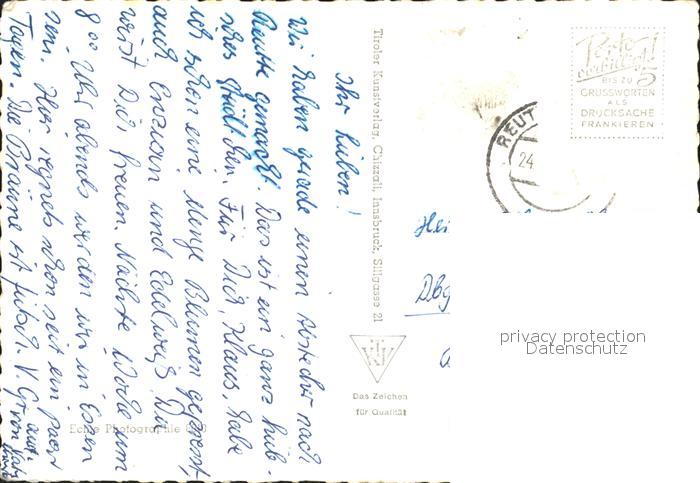 Ihr Lieben!
Wir haben gerade einen Abstecher nach
Reutte gemacht. Das ist ein ganz hüb-
sches Städtchen. Für Dich, Klaus, habe
ich schon eine Menge Blumen gepresst,
auch Enzian und Edelweiß. Du
wirst Dich freuen. Nächste Woche um
8 00 Uhr abends werden wir in Essen
sein. Hier regnets schon seit ein paar
Tagen. Die Bräune ist futsch. V. Gr. von
Tiroler Kunstverlag, Chizzali, Innsbruck, Sillgasse 21
Echte Photographie
Das Zeichen
für Qualität
Porto
verbilligt!
BIS ZU
5
GRUSSWORTEN
ALS
DRUCKSACHE
FRANKIEREN
REUT
24
Hei
Dbg
privacy protection
Datenschutz